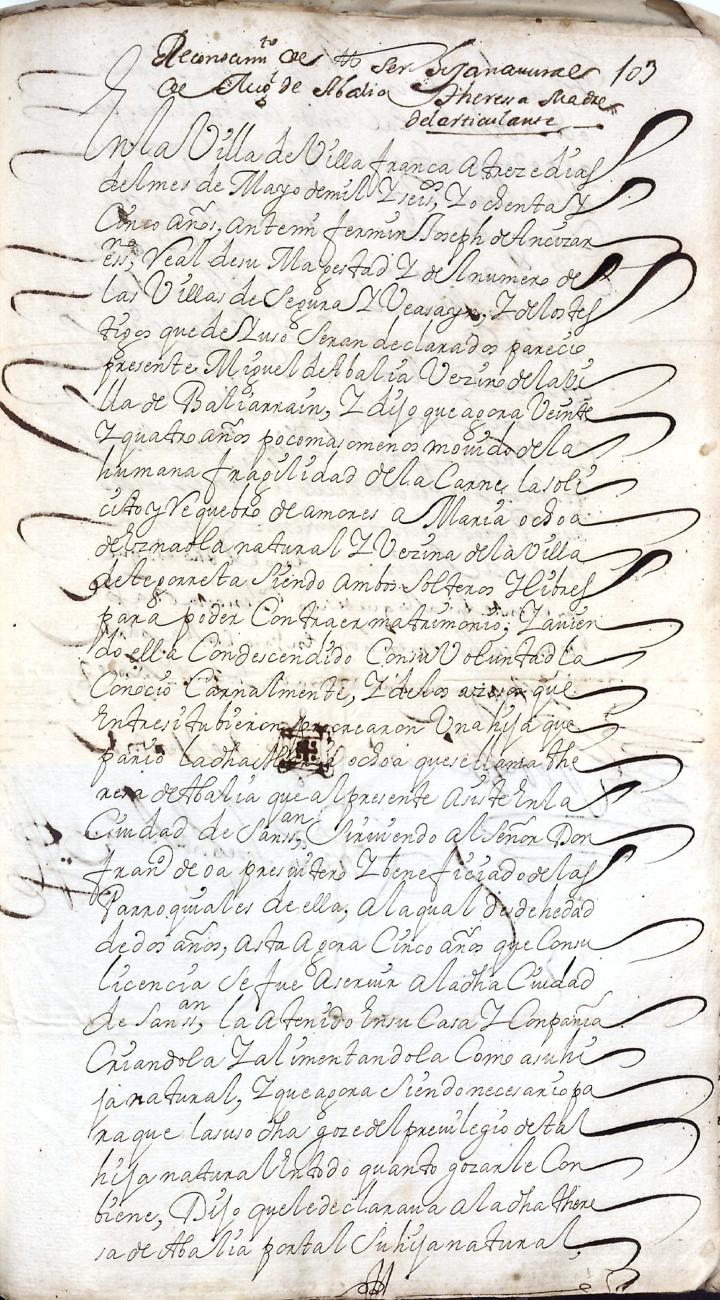 Reconocim.to de ser hija natural 103
de Mig.l de Abalia Theresa Madre
del articulante
En la Villa de Villa franca a treze dias
del mes de Mayo de mil Y seis.os Y ochenta Y
Cinco años, ante mi fermin Joseph de Ancizar
ess.no Real de su Magestad Y del numero de
las Villas de Segura Y Veasayn, Y de los tes
tigos que de Yuso Seran declarados parecio
presente Miguel de Abalia Vezino de la Vi
lla de Baliarrain, Y dijo que agora Veinte
Y quatro años poco mas o menos movido de la
humana fragilidad de la Carne la soli
cito y Requebro de amores a Maria ochoa
de natural Y Vezina de la Villa
de legorreta Siendo ambos Solteros Y libres
para poder Contraer matrimonio; Y avien
do ella Condescendido Con su Voluntad la
Conocio Carnalmente, Y de los que
Entre si tubieron procrearon Una hija que
pario la dha ochoa que se llama the
resa de Abalia que al presente asiste En la
Ciudad de San ss.an Sirviendo al Señor Don
fran.co de oa presvitero Y beneficiado de las
Parroquiales de ella, a la qual desde hedad
de dos años, asta agora Cinco años que Con su
licencia se fue a servir a la dha Ciudad
de San ss.an, la a tenido En su Casa Y Conpañia
Criandola Y alimentandola Como a su hi
ja natural, Y que agora siendo necesario pa
ra que la suso dha goze del previlegio de tal
hija natural En todo quanto gozar le Con
biene, Dijo que le declarava a la dha There
sa de Abalia por tal Su hija natural,